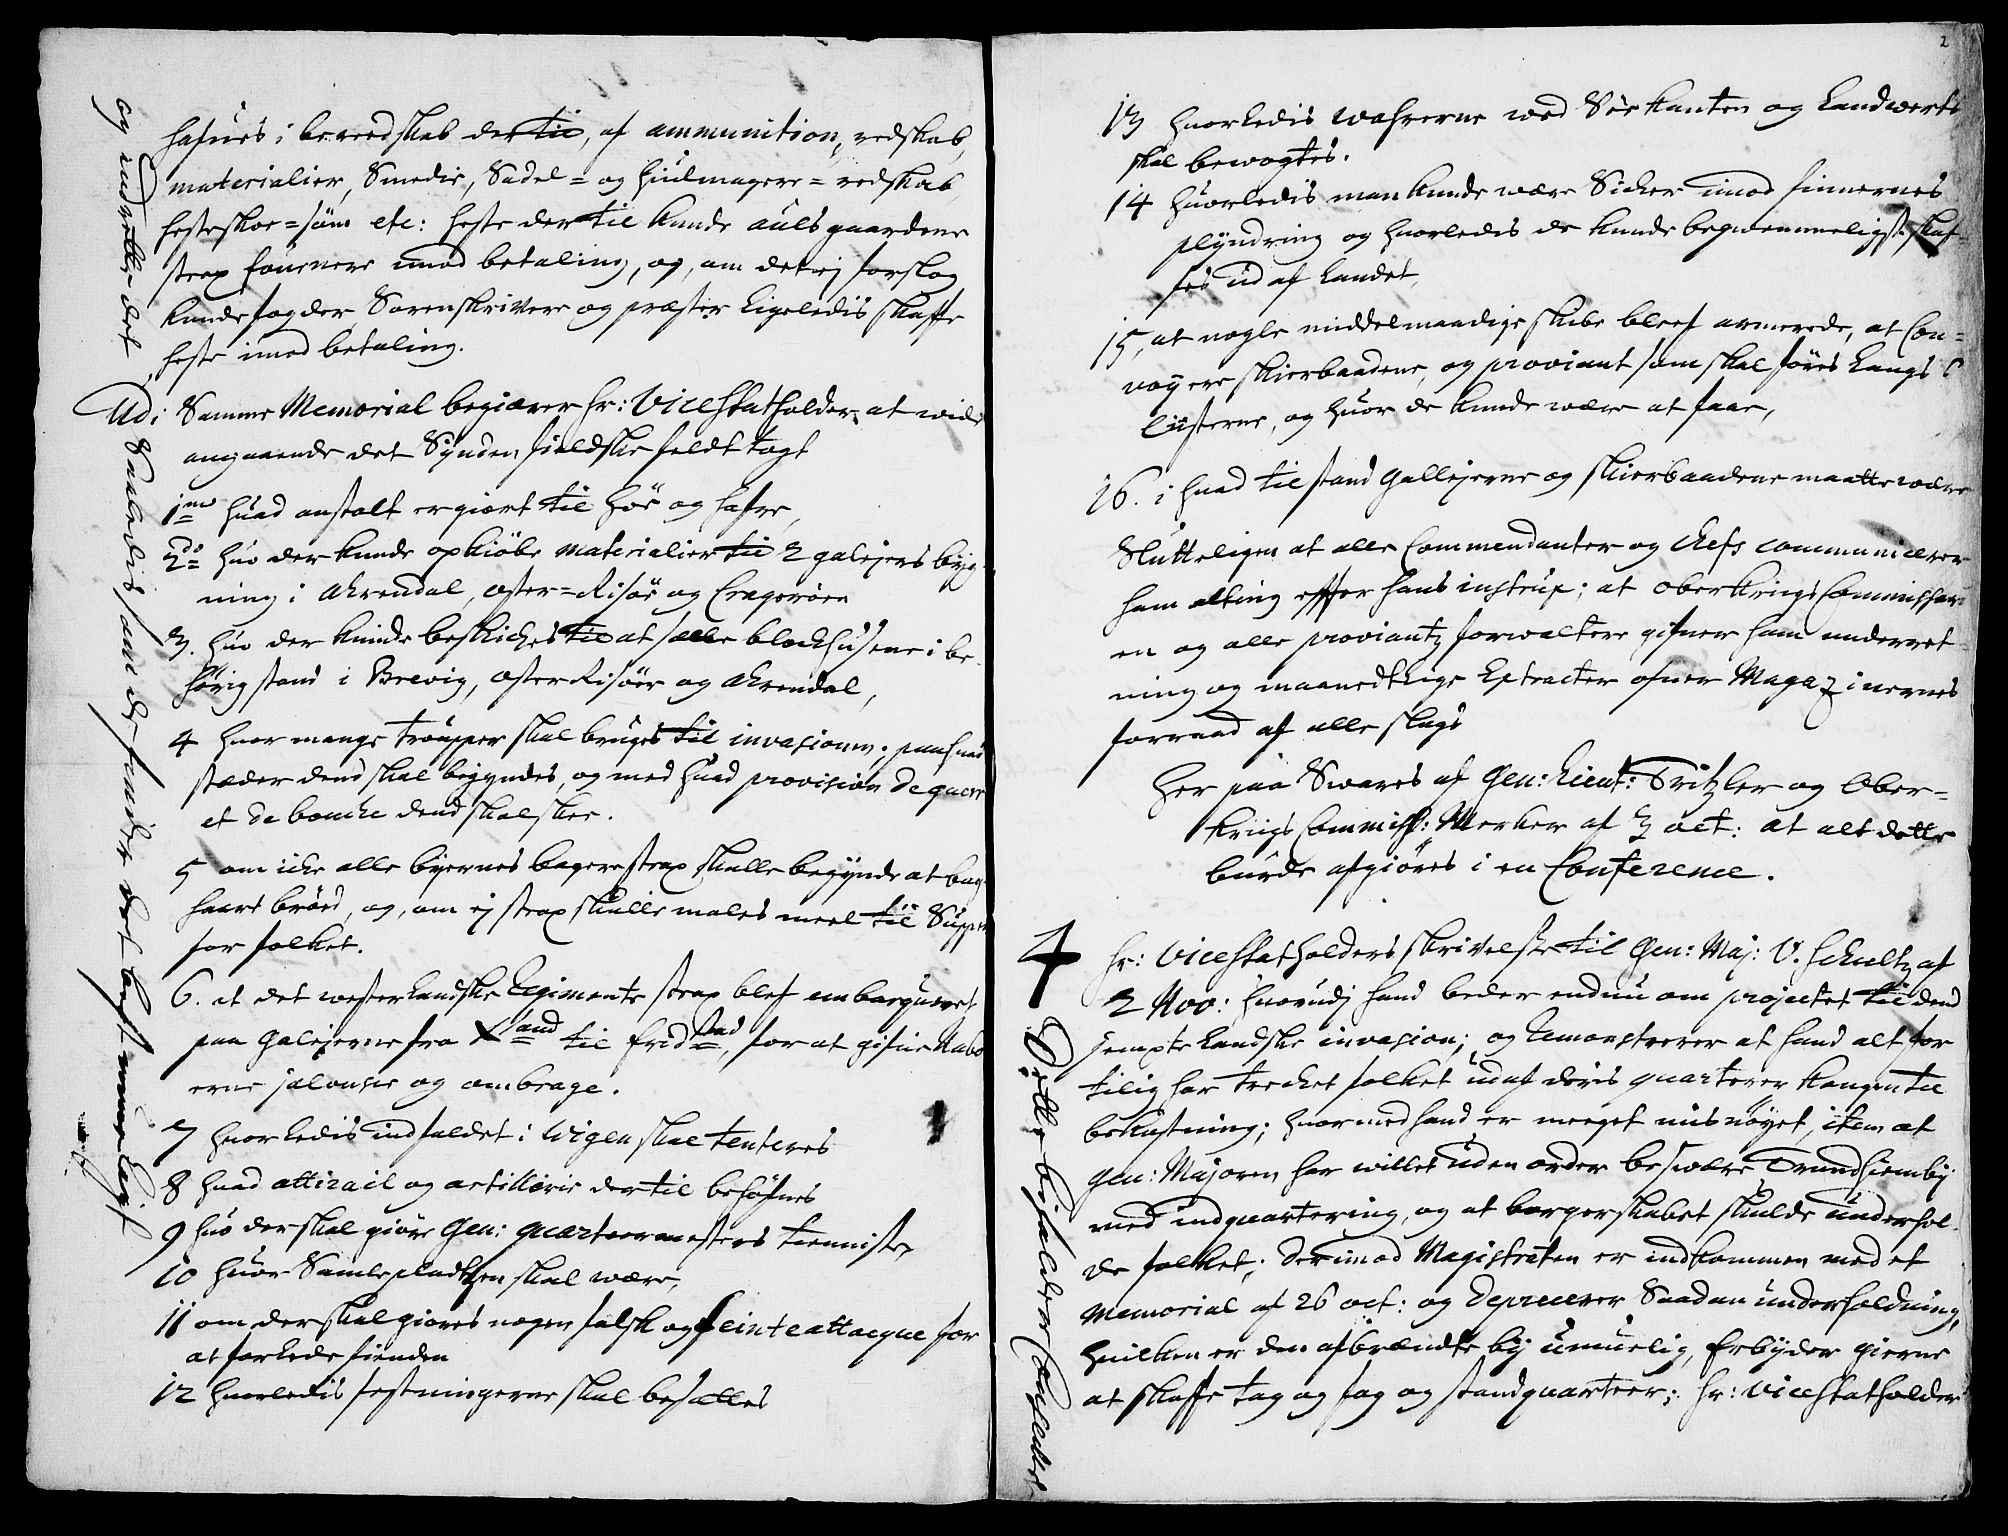 hafues i bereedskab der til, af ammunition, redskab,
materialier, Smedie, Sadel= og Hiulmagere= redskab
hesteskoe=söm etc: heste der til kunde aulsgaardene
strax fournere imod betaling, og, om det ej forslog
kunde fogder, Sorenskrivere og præster ligeledis skaffe
heste imod betaling.
Ud i Samme Memorial begiærer hr: ViceStatholder, at wide
angaaende det Syndenfieldske feldttogt
1mo huad anstalt er giort til Höe og hafre,
2do huo der kunde opkiöbe materialier til 2 galejers byg-
ning i Ahrendal, oster=Risöe og Cragerøen
3. huo der kunde beskickes til at sætte blockhusene i be-
hörig stand i Brevig, oster Risöer og Ahrendal,
4 huor mange troupper skal bruges til invasionen; paa huad
stæder dend skal begyndes, og med huad provision de guerre
et de bouche dend skal skee.
5 om icke alle byernes bagere strax skulle begynde at bage
haart bröed, og, om ej strax skulle males meel til Suppe
for folket.
6. at det westerlandske Regimente strax blef embarqueret
paa Galejerne fra Xsand til Fridstad, for at gifue Nabo
erne jalousie og ombrage.
7 huorledis indfaldet i Wigen skal tenteres
8 huad attirail og artillerie der til behöfues
9 huo der skal giöre Gen: quarteermesters tienniste
10 huor Samlepladtzen skal wære,
11 om der skal giøres nogen falsk og feinte attaque for
at forlede fienden
12 huorledis festningerne skal besættes
og indrette det Saaledis som de finder det best mueligt
2
13 huorledis wahrerne wed Söe kanten og Landwerts
skal bewogtes.
14 huorledis man kunde wære Sicker imod finnernes
plyndring og huorledis de kunde beqwemmeligst skaf-
fes ud af Landet,
15, at nogle middelmaadige skibe bleef armerede, at Con=
voyere skierbaadene, og proviant som skal föres langs
Custerne, og huor de kunde være at faae,
16. i huad tilstand Gallejerne og skierbaadene maatte være
Slutteligen at alle Commendanter og Chefs communicerer
ham alting efter hans instrux; at oberKrigsCommissari
en og alle proviantz forwaltere gifuer ham underret-
ning og maanedtlige Extracter ofuer Magazinernes
forraad af alle slags
Her paa Swares af Gen: Lieut: Tritzler og Ober=
Krigs Commiss: Werker af 3 oct: at alt dette
burde afgiöres i en Conference.
4 Hr: ViceStatholders skrivelse til Gen: Maj: V. Schultz af
2 Nov: huorudj hand beder endnu om projectet til dend
jempte Landske invasion; og Remonstrerer at hand alt for
tilig har trecket folket ud af deris quarterer Kongen til
bekostning; huormed hand er meget misnöyet, item at
Gen: Majoren har willet uden order beswære Trundhiem by
med indquartering, og at borgerskabet skulde underhol-
de folket; derimod Magistraten er indkommen med et
Memorial af 26 oct: og deprecerer Saadan underholdning,
huilken er den afbrændte by umuelig, erbyder gierne
at skaffe tag og fag og standquarteer; hr: ViceStatholder
Dette bifalder Conseillet